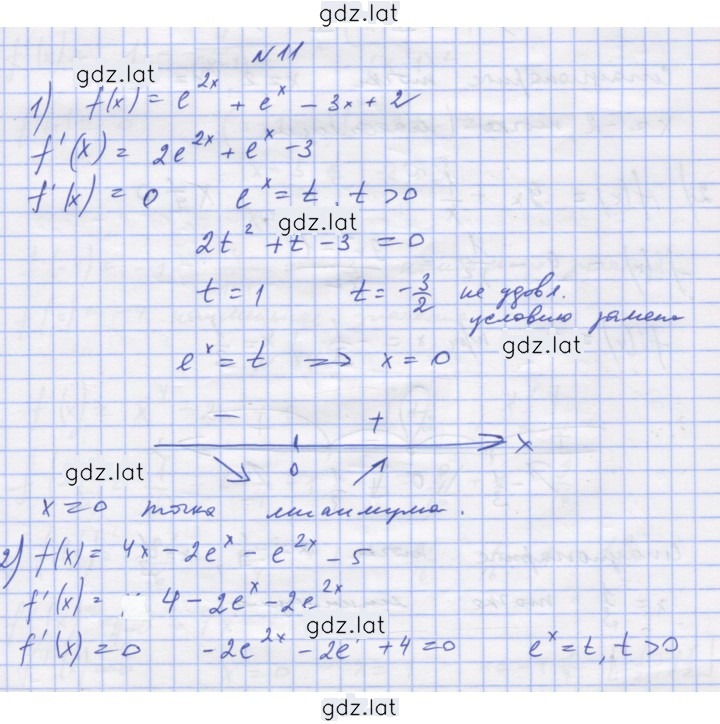 gdz.lat
N 11
gdz.lat
1) f(x) = e^{2x} + e^x - 3x + 2
f'(x) = 2e^{2x} + e^x - 3
f'(x) = 0 e^x = t, t > 0
gdz.lat
2t^2 + t - 3 = 0
t = 1 t = -\frac{3}{2} не удовл.
условию замены
gdz.lat
e^x = t => x = 0
- +
0 x
gdz.lat
x = 0 точка минимума.
2) f(x) = 4x - 2e^x - e^{2x} - 5
f'(x) = 4 - 2e^x - 2e^{2x}
gdz.lat
f'(x) = 0 -2e^{2x} - 2e^x + 4 = 0 e^x = t, t > 0
gdz.lat